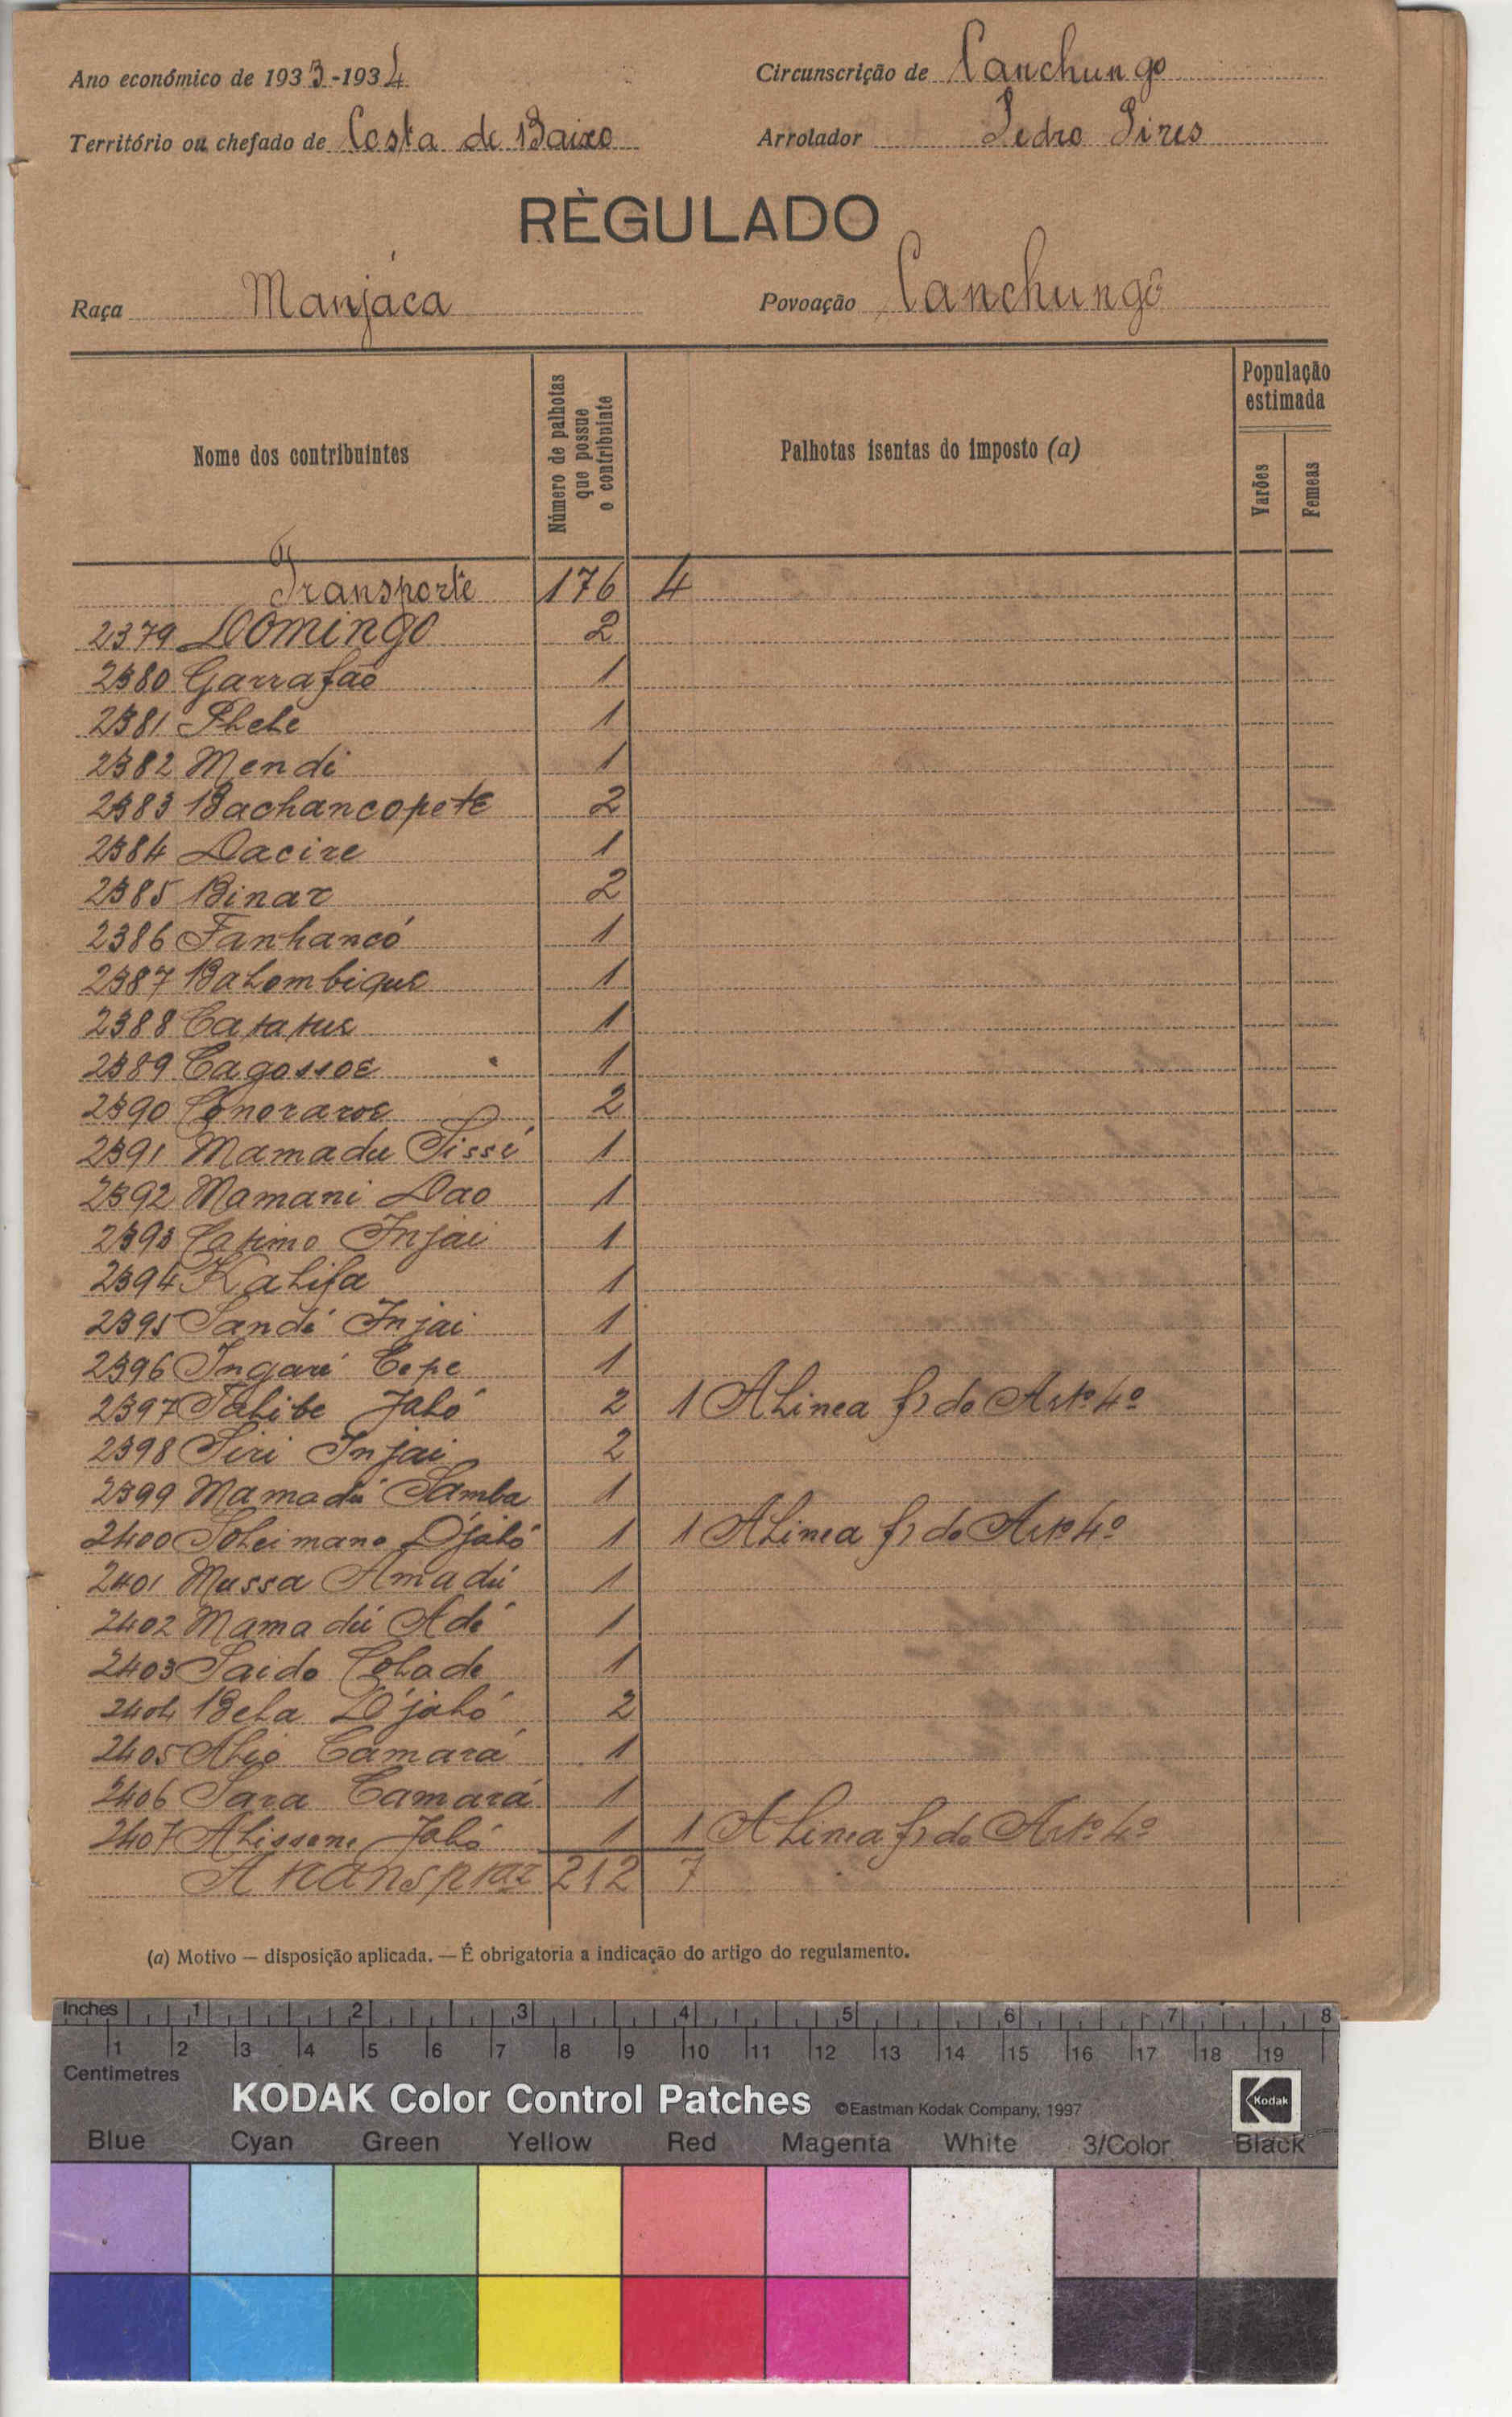 Ano económico de 1933-1934 Circunscrição de Canchungo
Território ou chefado de Costa de Baixo Arrolador Pedro Pires
RÈGULADO
Raça Manjáca Povoação Canchungô
Nome dos contribuintes
Número de palhotas que possue o contribuinte
Palhotas isentas do imposto (a)
População estimada
Varões
Femeas
Transporte 176 4
2379 Domingo 2
2380 Garrafão 1
2381 1
2382 Mendi 1
2383 Bachancopete 2
2384 Dacire 1
2385 Binar 2
2386 Fanhancó 1
2387 Balombique 1
2388 Catatue 1
2389 Cagossoe 1
2390 Conoraroe 2
2391 Mamadu Sissé 1
2392 Mamani Dao 1
2393 Catimo Injai 1
2394 Kalifa 1
2395 Sandé Injai 1
2396 Ingaré Cepe 1
2397 Salibe Jaló 2 1 Alinea f) do Artº 4º
2398 Siri Injai 2
2399 Mamadú Samba 1
2400 Soleimane D'jaló 1 1 Alinea f) do Artº 4º
2401 Mussa Amadú 1
2402 Mamadú Adé 1
2403 Saido Colade 1
2404 Bela D'jaló 2
2405 Camará 1
2406 Sara Camará 1
2407 Alissene Jaló 1 1 Alinea f) do Artº 4º
A transptar 212 7
(a) Motivo — disposição aplicada. — É obrigatoria a indicação do artigo do regulamento.
Inches 1 2 3 4 5 6 7 8
1 2 3 4 5 6 7 8 9 10 11 12 13 14 15 16 17 18 19
Centimetres
KODAK Color Control Patches ©Eastman Kodak Company, 1997 Kodak
Blue Cyan Green Yellow Red Magenta White 3/Color Black